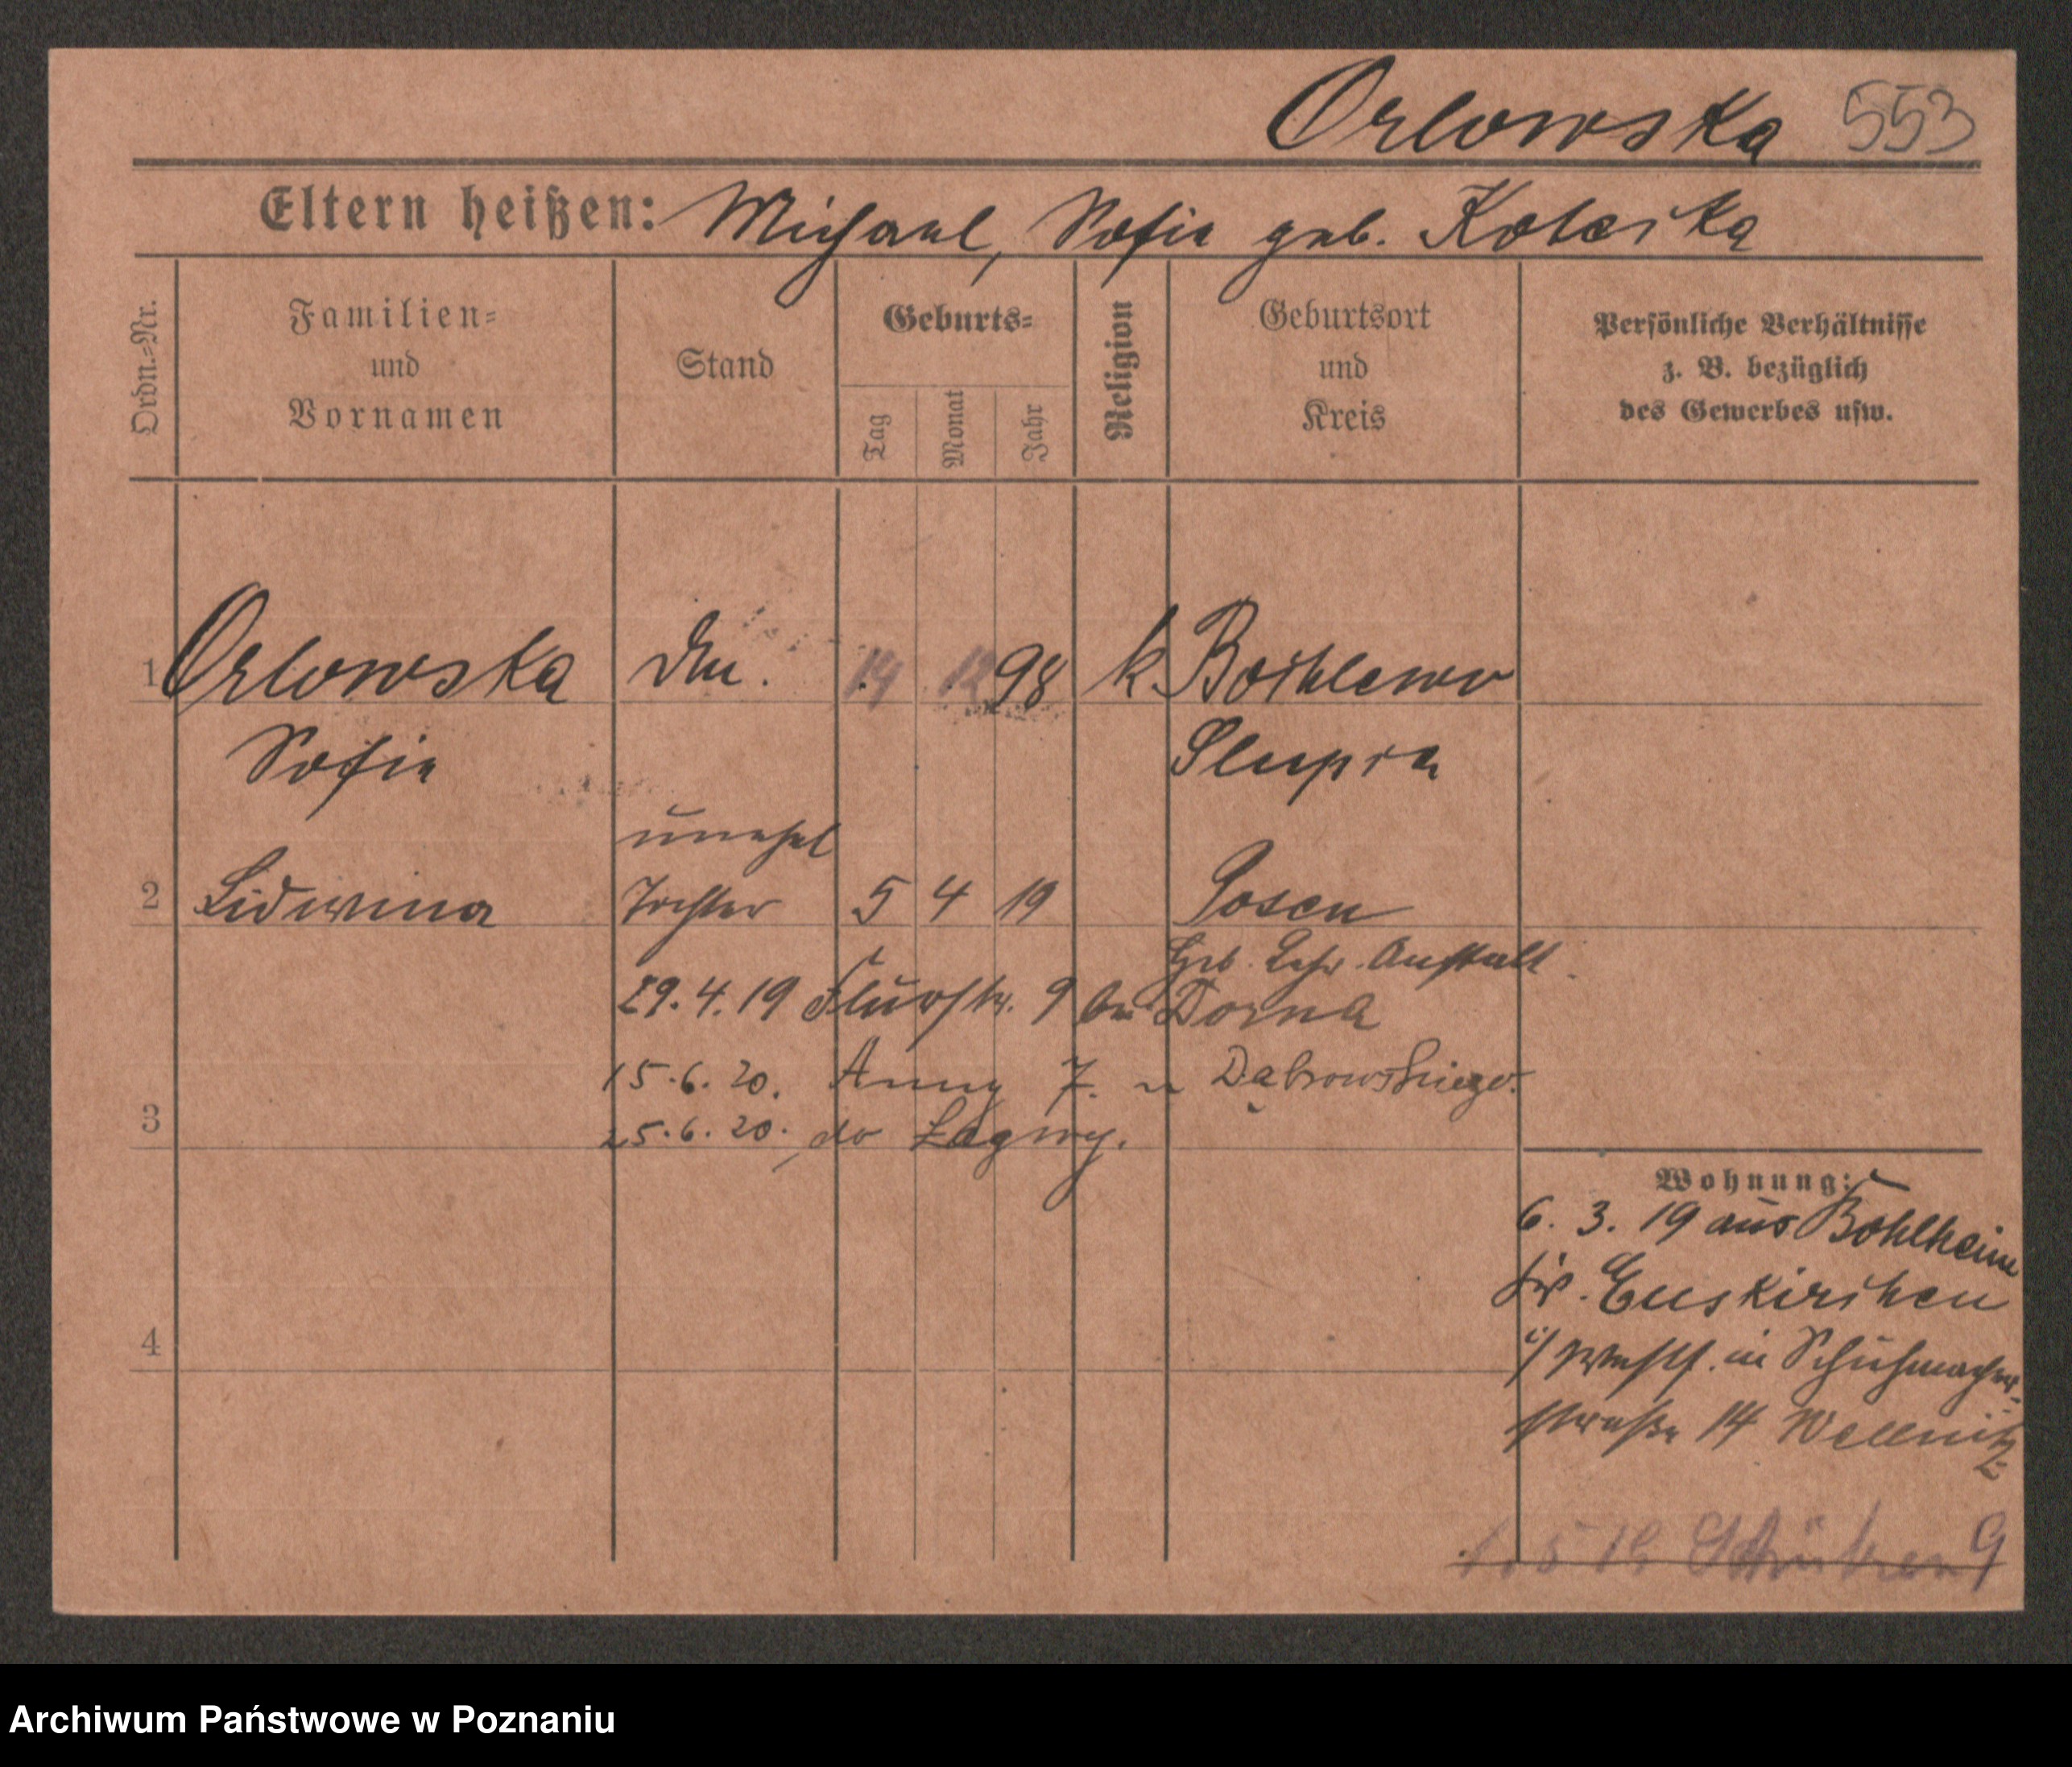 Orlowska 553
Eltern heißen: Michael, Sofie geb.
Ordn.-Nr.
Familien-
und
Vornamen
Stand
Geburts-
Tag
Monat
Jahr
Religion
Geburtsort
und
Kreis
Persönliche Verhältnisse
z. B. bezüglich
des Gewerbes usw.
1 Orlowska 14 12 98 k
Sofie
Slupia
unehel
2 Lidwina Tochter 5 4 19 Posen
Geb. Lehr. Anstalt
29.4.19 Flurstr. 9 bei Dorna
15.6.20. Anny 7. u Dąbrowskiego.
3
25.6.20. do
Wohnung:
6. 3. 19 aus
Kr. Euskirchen
i/ Westf. in Schuhmacher-
4
straße 14 Wellnitz